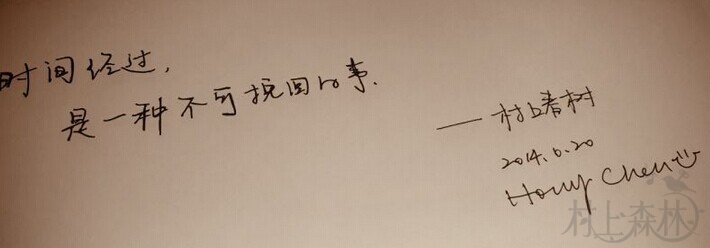 时间经过，
是一种不可挽回的事.
—— 村上春树
2014.6.20
Hony Chen
村上森林